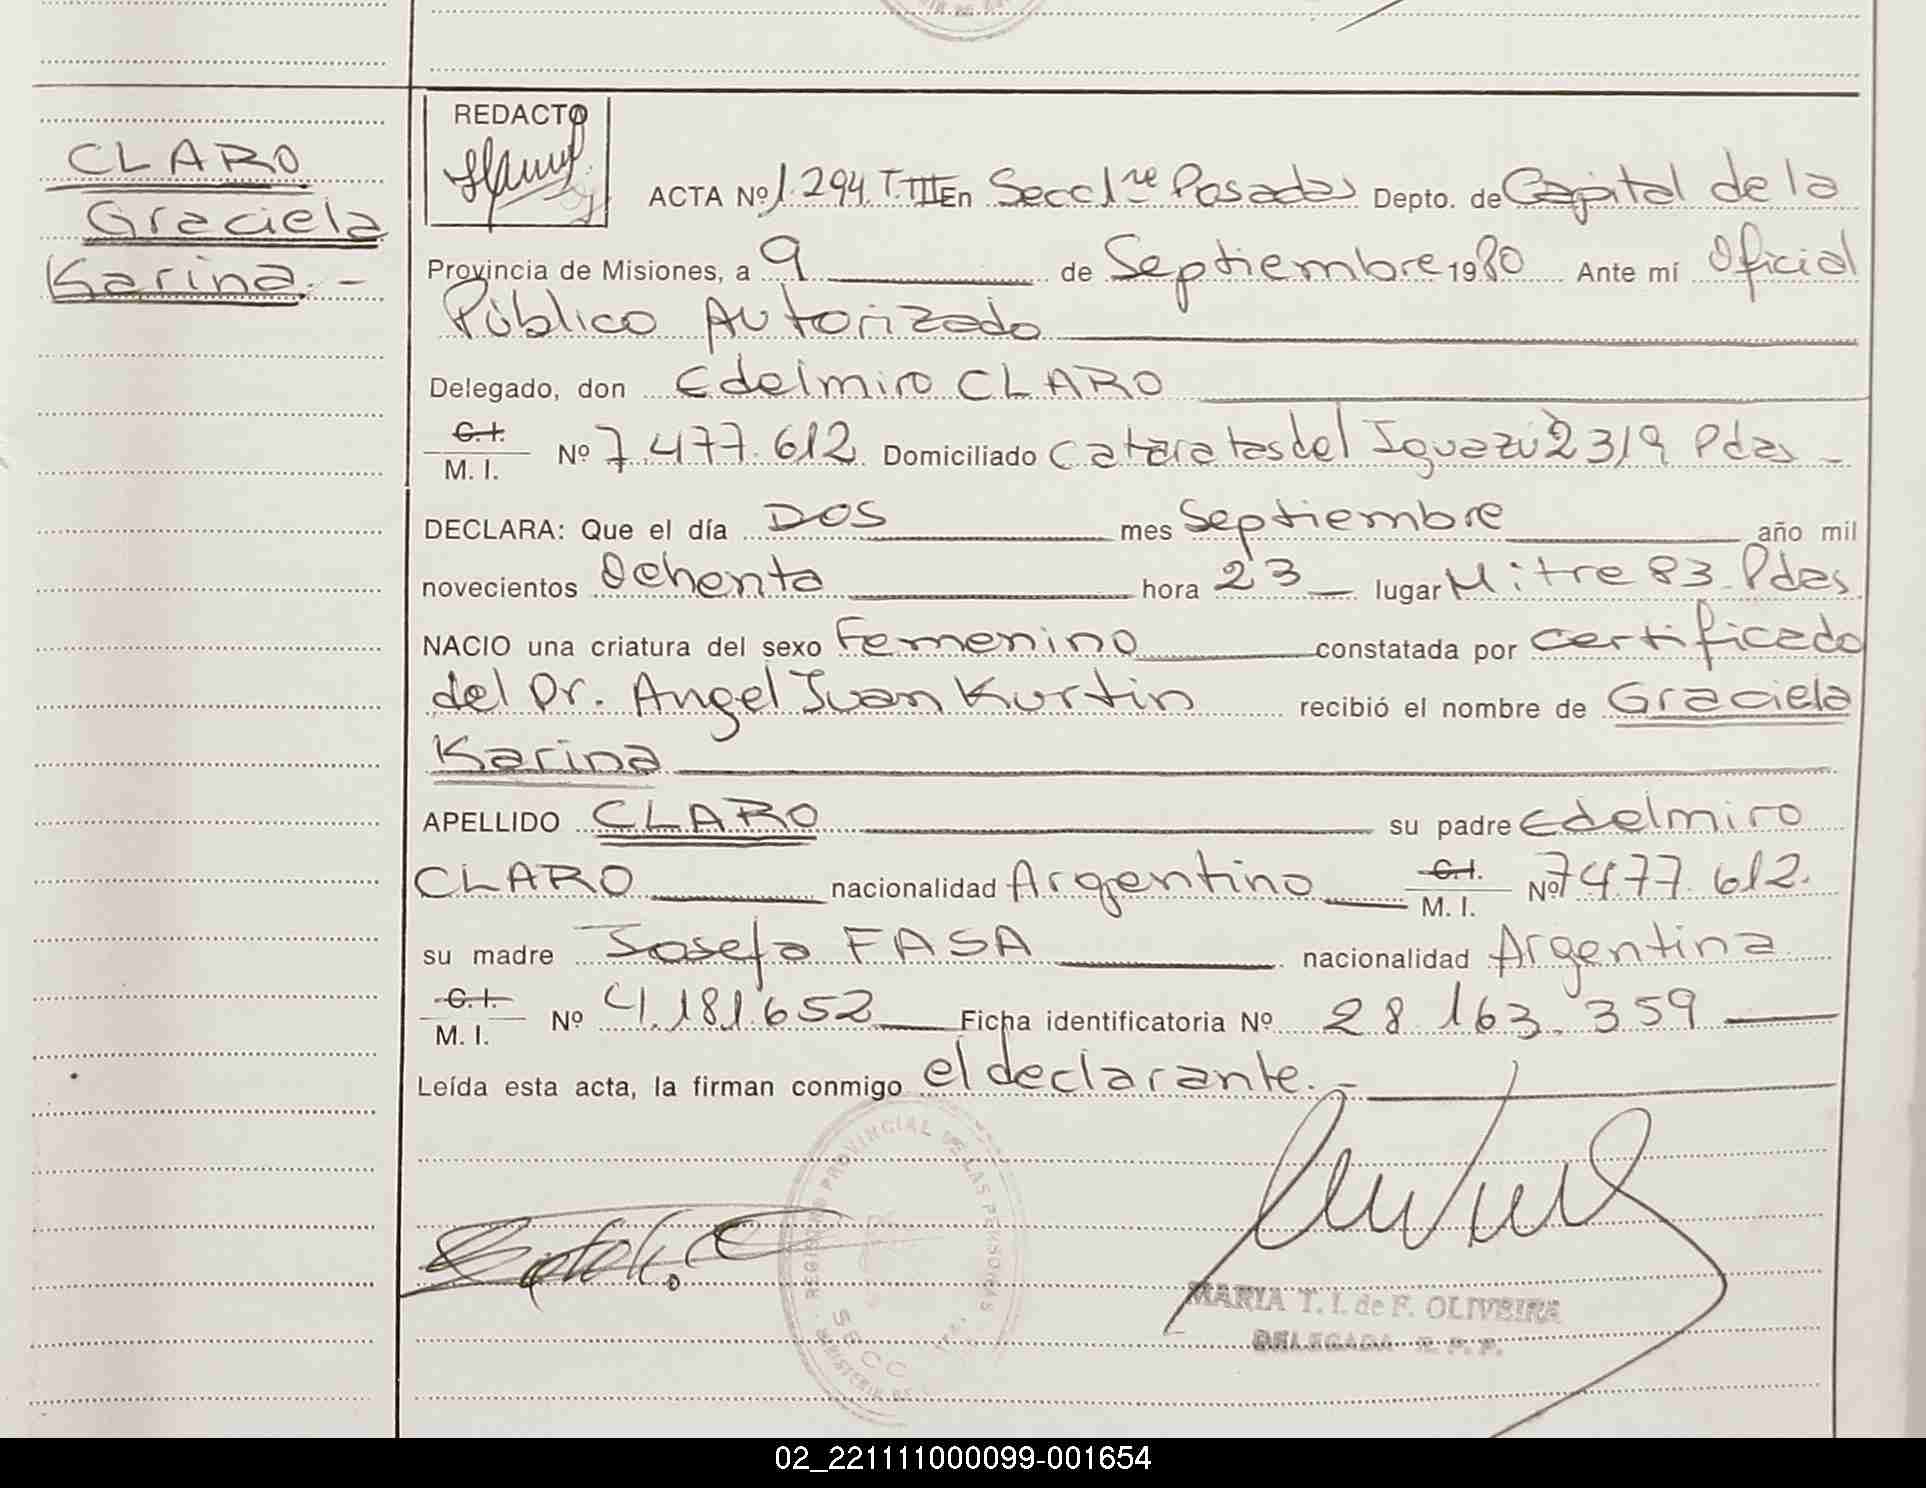 CLARO
Graciela
Karina.-
REDACTO
ACTA Nº 1.294 T.III En Secc 1re Posadas Depto. de Capital de la
Provincia de Misiones, a 9 de Septiembre 1980 Ante mí Oficial
Público Autorizado
Delegado, don Edelmiro CLARO
C.I.
M. I. Nº 7.477.612 Domiciliado Cataratas del Iguazú 2319 Pdas -
DECLARA: Que el día DOS mes Septiembre año mil
novecientos Ochenta hora 23 lugar Mitre 83 Pdas.
NACIO una criatura del sexo Femenino constatada por certificado
del Dr. Angel Juan Kurtin recibió el nombre de Graciela
Karina
APELLIDO CLARO su padre Edelmiro
CLARO nacionalidad Argentino C.I. M. I. Nº 7477.612.
su madre Josefa FASA nacionalidad Argentina
C.I.
M. I. Nº 4.181.652 Ficha identificatoria Nº 28.163.359
Leída esta acta, la firman conmigo el declarante.-
REGISTRO PROVINCIAL DE LAS PERSONAS
SECC
MARIA T. I. de F. OLIVEIRA
DELEGADA R. P. P.
02_221111000099-001654